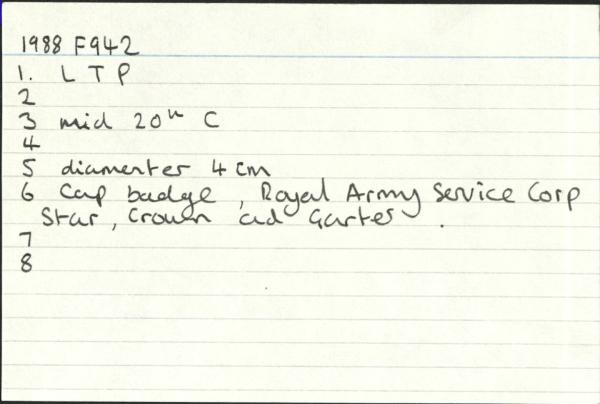 1988 F942
1. L T P
2
3 mid 20th C
4
5 diamenter 4cm
6 Cap badge, Royal Army Service Corp
Star, Crown ad Garter.
7
8